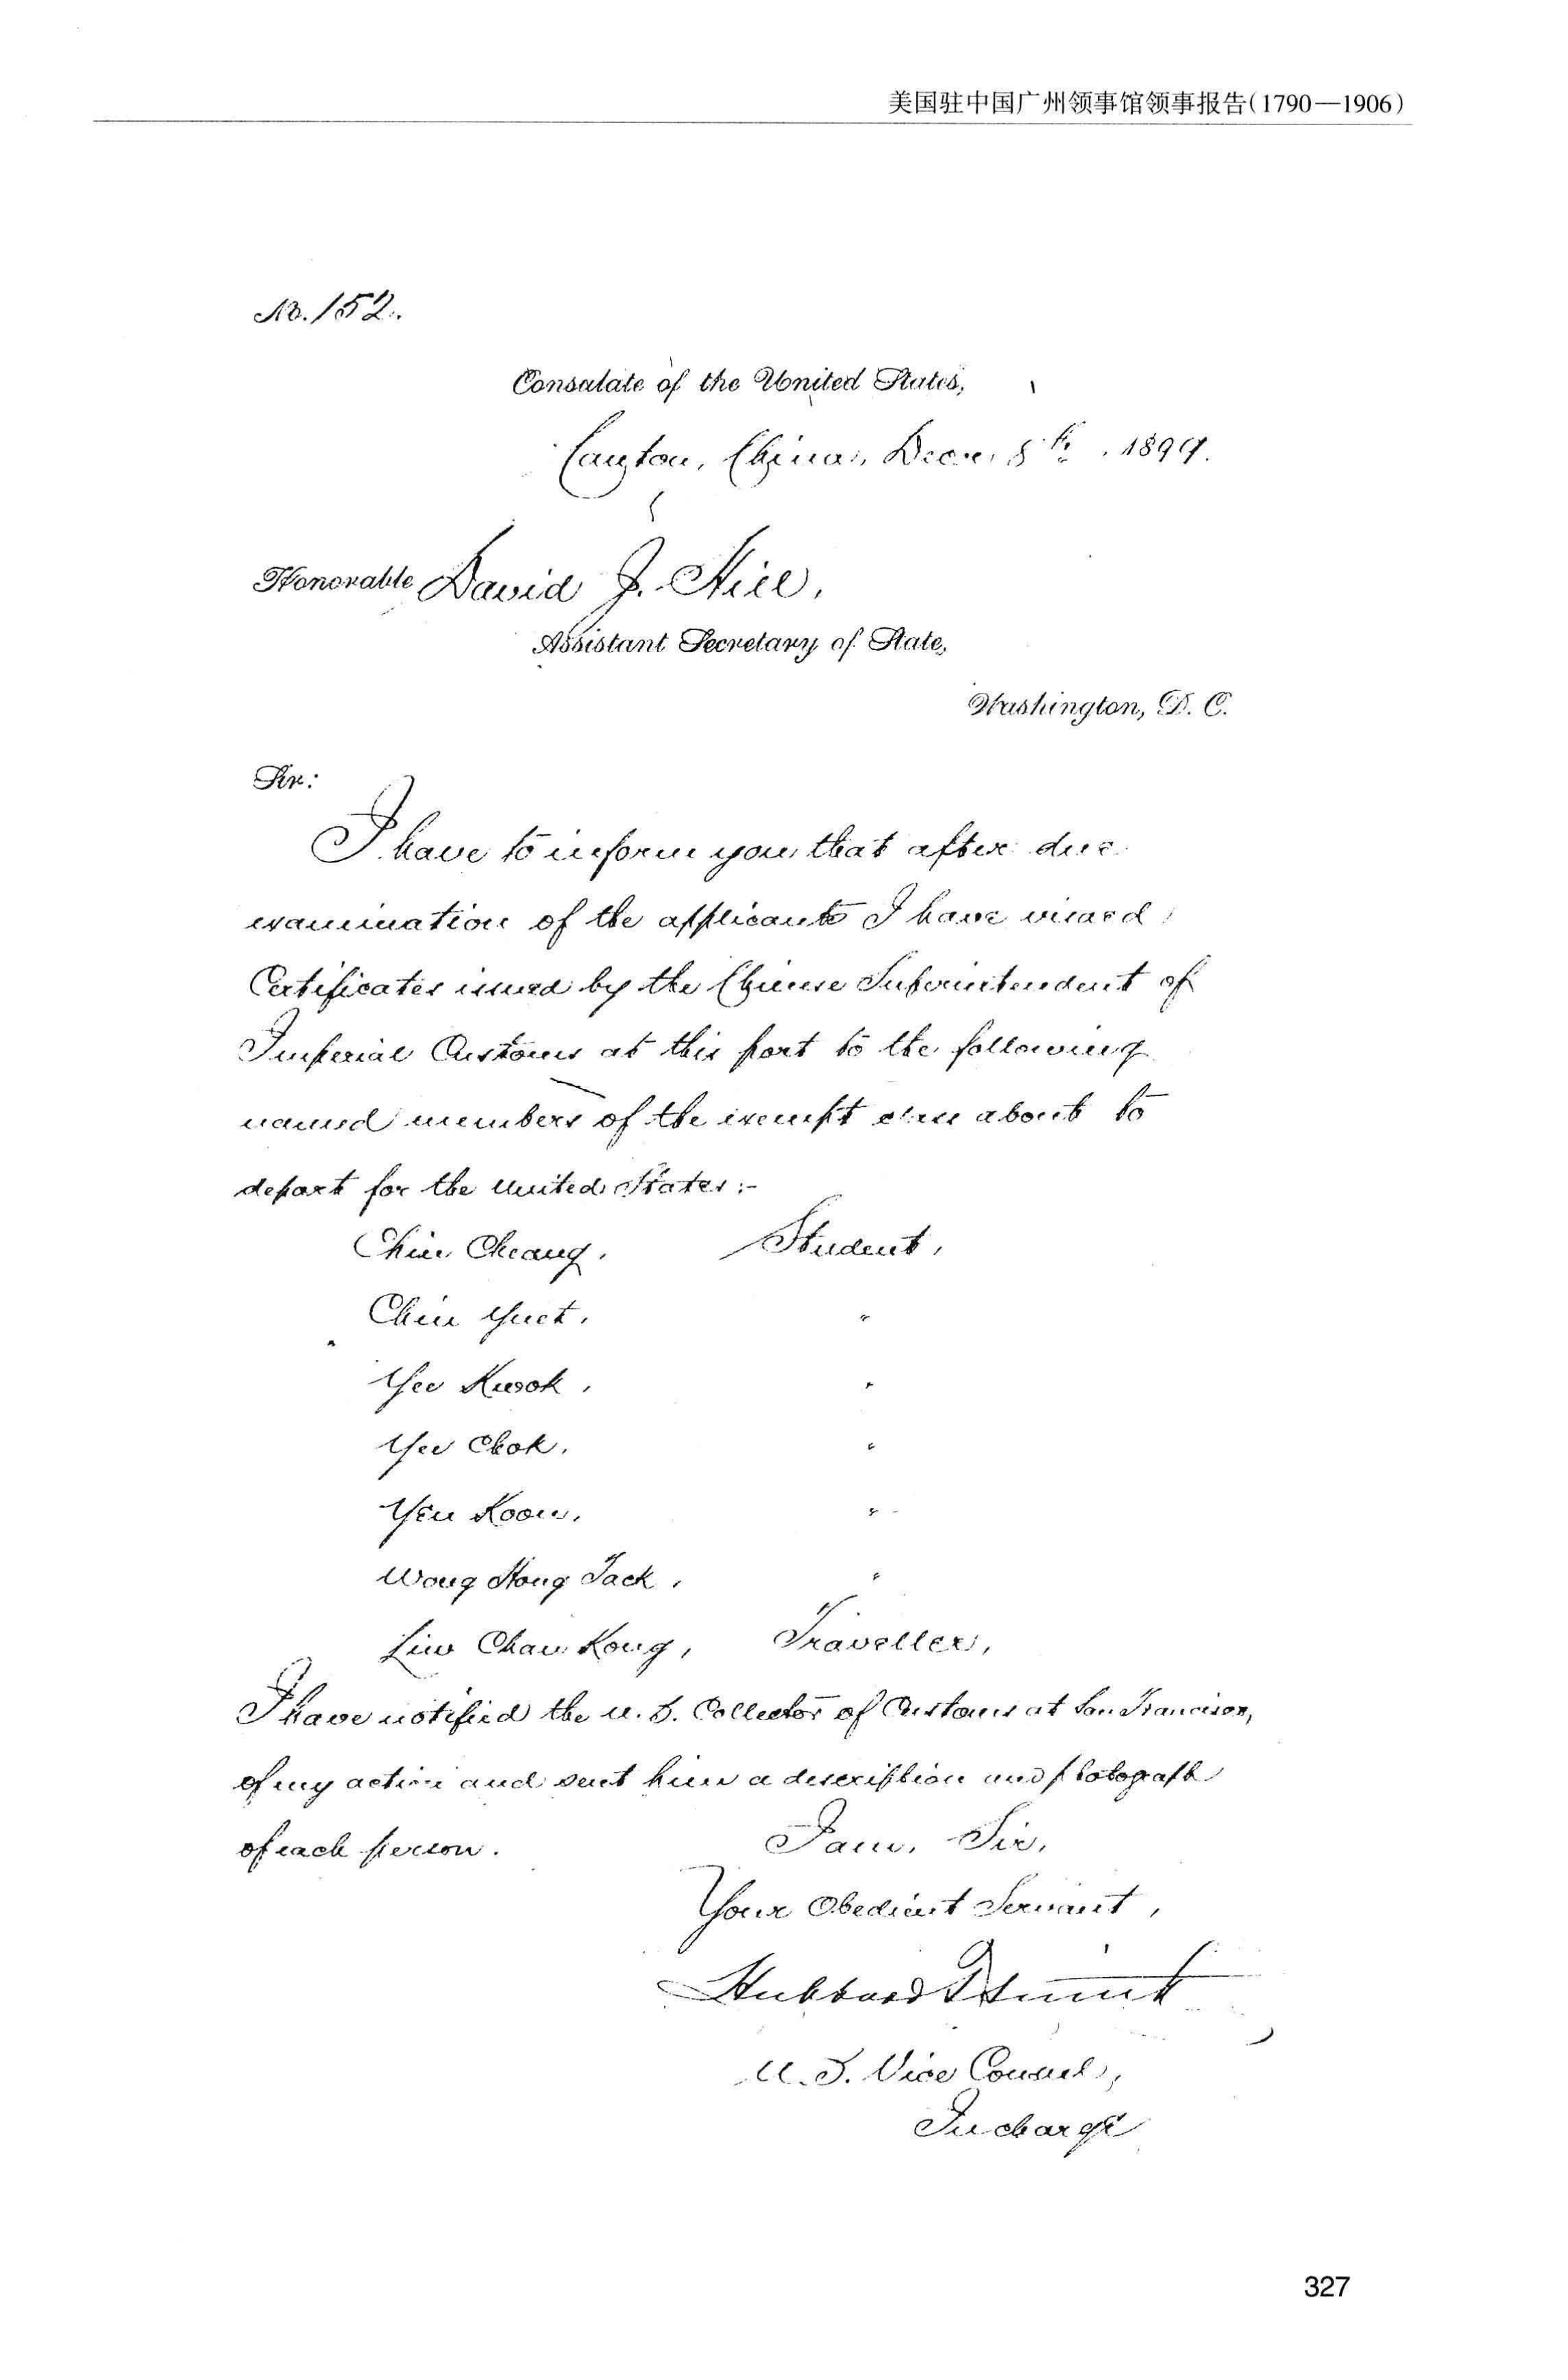 美国驻中国广州领事馆领事报告(1790—1906)
No. 152.
Consulate of the United States,
Canton, China, Decr. 8th. 1899.
Honorable David J. Hill,
Assistant Secretary of State,
Washington, D. C.
Sir:
I have to inform you that after due
examination of the applicants I have visaed
Certificates issued by the Chinese Superintendent of
Imperial Customs at this port to the following
named members of the exempt class about to
depart for the United States:-
Chin Cheang, Student,
Chin Yuet, "
Yee Kwok, "
Yee Chok, "
Yeu Koon, "
Wong Hong Jack, "
Liw Chan Kong, Traveller,
I have notified the U. S. Collector of Customs at San Francisco,
of my action and sent him a description and photograph
of each person.
I am, Sir,
Your Obedient Servant,
Hubbard T. Smith
U. S. Vice Consul,
In charge
327